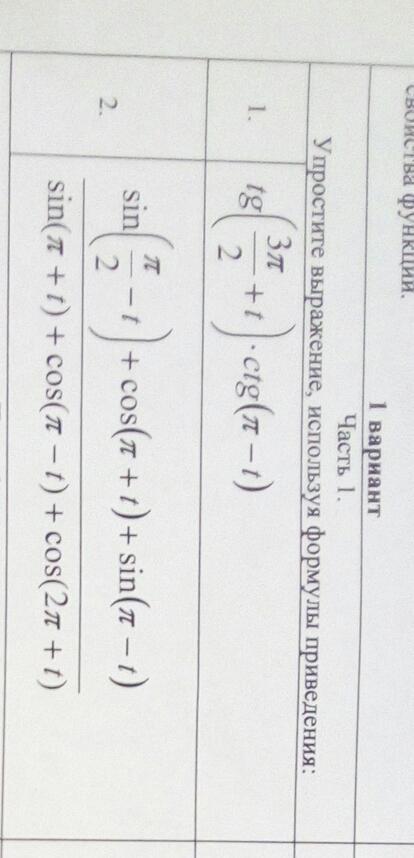 свойства функций.
1 вариант
Часть 1.
Упростите выражение, используя формулы приведения:
1. tg(3π/2 + t) · ctg(π − t)
2. sin(π/2 − t) + cos(π + t) + sin(π − t)
sin(π + t) + cos(π − t) + cos(2π + t)